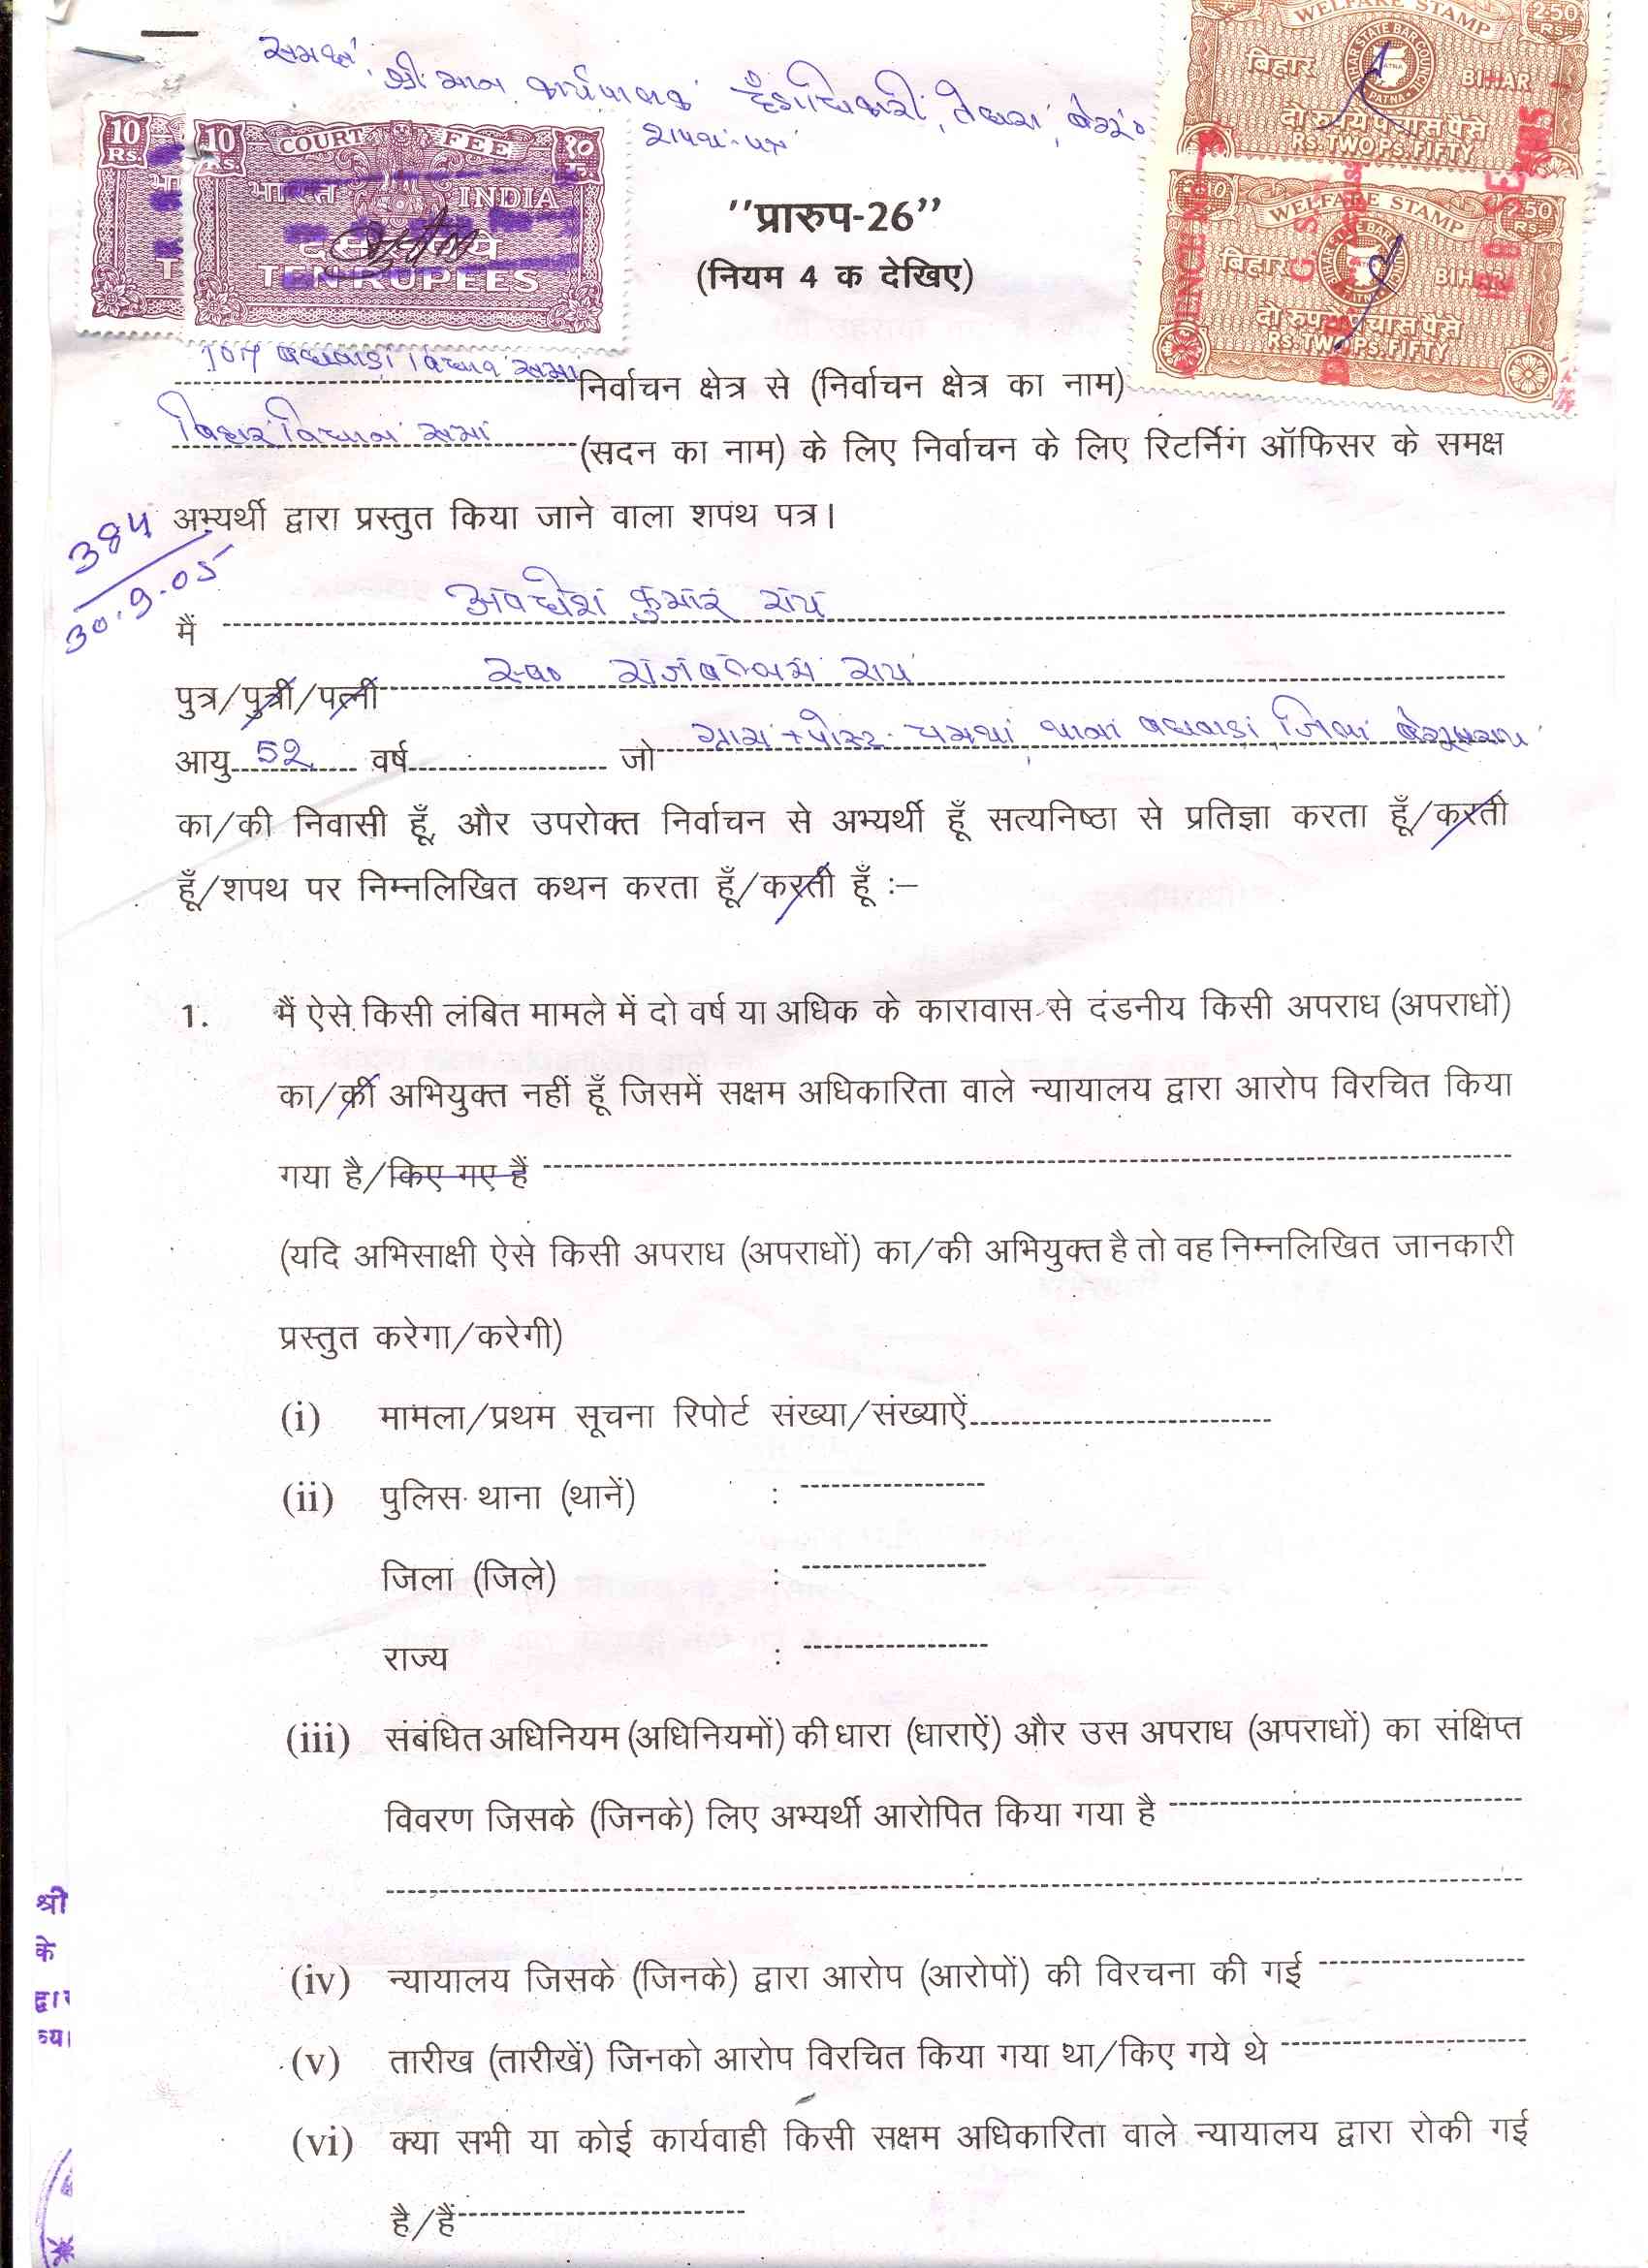 समक्ष, श्रीमान कार्यपालक दंडाधिकारी, तेघरा, बेगू०
शपथ-पत्र
10 Rs.
10 Rs. COURT FEE १० रु.
भारत INDIA
TEN RUPEES
WELFARE STAMP 2.50 RS.
BIHAR STATE BAR COUNCIL PATNA
बिहार BIHAR
दो रुपये पचास पैसे
RS. TWO PS. FIFTY
WELFARE STAMP 2.50 RS.
बिहार BIHAR
दो रुपये पचास पैसे
RS. TWO PS. FIFTY
"प्रारुप-26"
(नियम 4 क देखिए)
107 बछवाड़ा विधान सभा निर्वाचन क्षेत्र से (निर्वाचन क्षेत्र का नाम)
बिहार विधान सभा (सदन का नाम) के लिए निर्वाचन के लिए रिटर्निंग ऑफिसर के समक्ष
अभ्यर्थी द्वारा प्रस्तुत किया जाने वाला शपथ पत्र।
384
30.9.05
मैं अवधेश कुमार राय
पुत्र/पुत्री/पत्नी स्व० राजबल्लम राय
आयु 52 वर्ष जो ग्राम + पोस्ट- चमथा, थाना बछवाड़ा, जिला बेगूसराय
का/की निवासी हूँ, और उपरोक्त निर्वाचन से अभ्यर्थी हूँ सत्यनिष्ठा से प्रतिज्ञा करता हूँ/करती
हूँ/शपथ पर निम्नलिखित कथन करता हूँ/करती हूँ :–
1. मैं ऐसे किसी लंबित मामले में दो वर्ष या अधिक के कारावास से दंडनीय किसी अपराध (अपराधों)
का/की अभियुक्त नहीं हूँ जिसमें सक्षम अधिकारिता वाले न्यायालय द्वारा आरोप विरचित किया
गया है/किए गए हैं
(यदि अभिसाक्षी ऐसे किसी अपराध (अपराधों) का/की अभियुक्त है तो वह निम्नलिखित जानकारी
प्रस्तुत करेगा/करेगी)
(i) मामला/प्रथम सूचना रिपोर्ट संख्या/संख्याऐं
(ii) पुलिस थाना (थानें) :
जिला (जिले) :
राज्य :
(iii) संबंधित अधिनियम (अधिनियमों) की धारा (धाराऐं) और उस अपराध (अपराधों) का संक्षिप्त
विवरण जिसके (जिनके) लिए अभ्यर्थी आरोपित किया गया है
(iv) न्यायालय जिसके (जिनके) द्वारा आरोप (आरोपों) की विरचना की गई
(v) तारीख (तारीखें) जिनको आरोप विरचित किया गया था/किए गये थे
(vi) क्या सभी या कोई कार्यवाही किसी सक्षम अधिकारिता वाले न्यायालय द्वारा रोकी गई
है/हैं
श्री
के